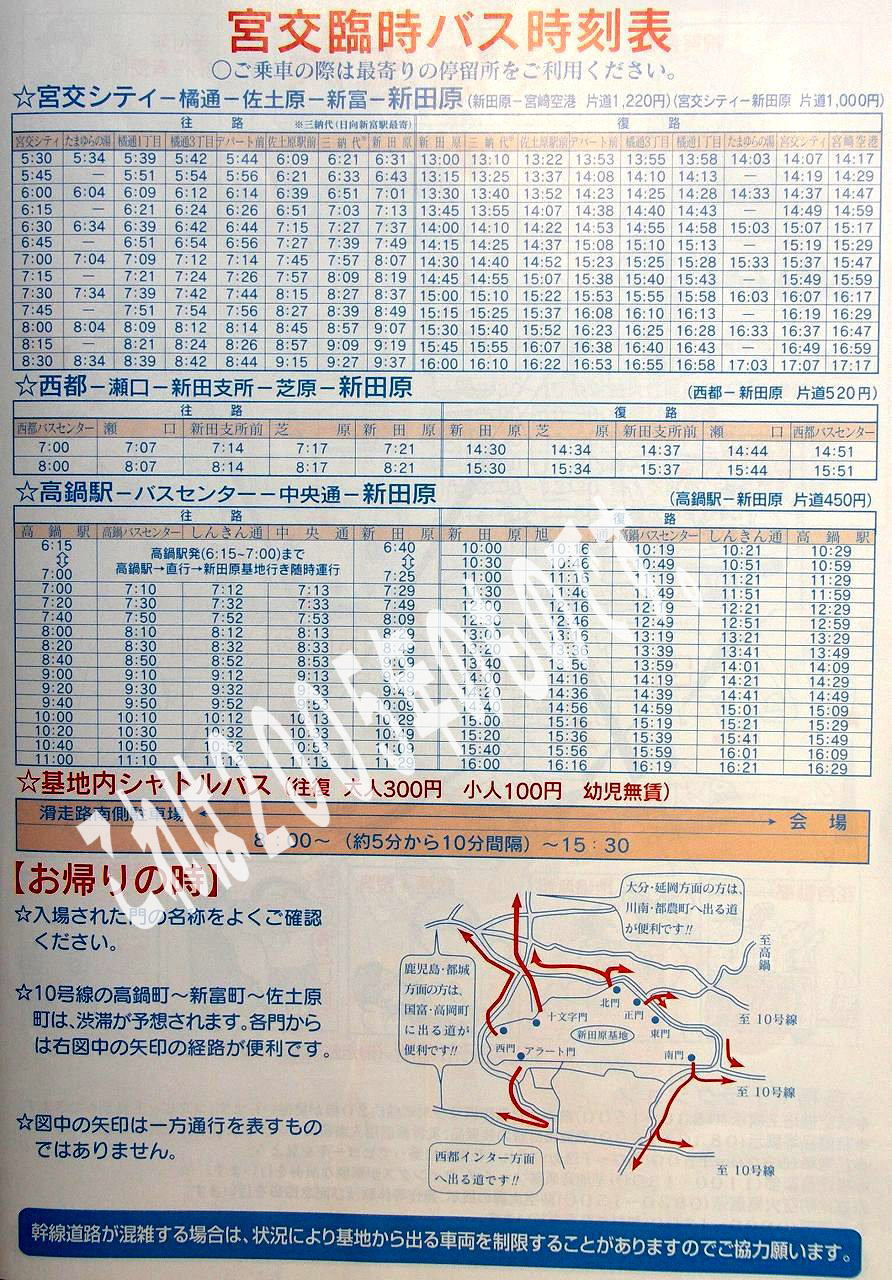 宮交臨時バス時刻表
○ご乗車の際は最寄りの停留所をご利用ください。
☆宮交シティー橘通ー佐土原ー新富ー新田原 (新田原ー宮崎空港 片道1,220円)(宮交シティー新田原 片道1,000円)
往 路 ※三納代(日向新富駅最寄) 復 路
宮交シティ たまゆらの湯 橘通1丁目 橘通3丁目 デパート前 佐土原駅前 三納代※ 新田原 新田原 三納代※ 佐土原駅前 デパート前 橘通3丁目 橘通1丁目 たまゆらの湯 宮交シティ 宮崎空港
5:30 5:34 5:39 5:42 5:44 6:09 6:21 6:31 13:00 13:10 13:22 13:53 13:55 13:58 14:03 14:07 14:17
5:45 － 5:51 5:54 5:56 6:21 6:33 6:43 13:15 13:25 13:37 14:08 14:10 14:13 － 14:19 14:29
6:00 6:04 6:09 6:12 6:14 6:39 6:51 7:01 13:30 13:40 13:52 14:23 14:25 14:28 14:33 14:37 14:47
6:15 － 6:21 6:24 6:26 6:51 7:03 7:13 13:45 13:55 14:07 14:38 14:40 14:43 － 14:49 14:59
6:30 6:34 6:39 6:42 6:44 7:15 7:27 7:37 14:00 14:10 14:22 14:53 14:55 14:58 15:03 15:07 15:17
6:45 － 6:51 6:54 6:56 7:27 7:39 7:49 14:15 14:25 14:37 15:08 15:10 15:13 － 15:19 15:29
7:00 7:04 7:09 7:12 7:14 7:45 7:57 8:07 14:30 14:40 14:52 15:23 15:25 15:28 15:33 15:37 15:47
7:15 － 7:21 7:24 7:26 7:57 8:09 8:19 14:45 14:55 15:07 15:38 15:40 15:43 － 15:49 15:59
7:30 7:34 7:39 7:42 7:44 8:15 8:27 8:37 15:00 15:10 15:22 15:53 15:55 15:58 16:03 16:07 16:17
7:45 － 7:51 7:54 7:56 8:27 8:39 8:49 15:15 15:25 15:37 16:08 16:10 16:13 － 16:19 16:29
8:00 8:04 8:09 8:12 8:14 8:45 8:57 9:07 15:30 15:40 15:52 16:23 16:25 16:28 16:33 16:37 16:47
8:15 － 8:21 8:24 8:26 8:57 9:09 9:19 15:45 15:55 16:07 16:38 16:40 16:43 － 16:49 16:59
8:30 8:34 8:39 8:42 8:44 9:15 9:27 9:37 16:00 16:10 16:22 16:53 16:55 16:58 17:03 17:07 17:17
☆西都ー瀬口ー新田支所ー芝原ー新田原 (西都ー新田原 片道520円)
往 路 復 路
西都バスセンター 瀬口 新田支所前 芝原 新田原 新田原 芝原 新田支所前 瀬口 西都バスセンター
7:00 7:07 7:14 7:17 7:21 14:30 14:34 14:37 14:44 14:51
8:00 8:07 8:14 8:17 8:21 15:30 15:34 15:37 15:44 15:51
☆高鍋駅ーバスセンターー中央通ー新田原 (高鍋駅ー新田原 片道450円)
往 路 復 路
高鍋駅 高鍋バスセンター しんきん通 中央通 新田原 新田原 旭通 高鍋バスセンター しんきん通 高鍋駅
6:15 高鍋駅発(6:15~7:00)まで 6:40 10:00 10:16 10:19 10:21 10:29
⇕ ⇕ 10:30 10:46 10:49 10:51 10:59
7:00 高鍋駅→直行→新田原基地行き随時運行 7:25 11:00 11:16 11:19 11:21 11:29
7:00 7:10 7:12 7:13 7:29 11:30 11:46 11:49 11:51 11:59
7:20 7:30 7:32 7:33 7:49 12:00 12:16 12:19 12:21 12:29
7:40 7:50 7:52 7:53 8:09 12:30 12:46 12:49 12:51 12:59
8:00 8:10 8:12 8:13 8:29 13:00 13:16 13:19 13:21 13:29
8:20 8:30 8:32 8:33 8:49 13:20 13:36 13:39 13:41 13:49
8:40 8:50 8:52 8:53 9:09 13:40 13:56 13:59 14:01 14:09
9:00 9:10 9:12 9:13 9:29 14:00 14:16 14:19 14:21 14:29
9:20 9:30 9:32 9:33 9:49 14:20 14:36 14:39 14:41 14:49
9:40 9:50 9:52 9:53 10:09 14:40 14:56 14:59 15:01 15:09
10:00 10:10 10:12 10:13 10:29 15:00 15:16 15:19 15:21 15:29
10:20 10:30 10:32 10:33 10:49 15:20 15:36 15:39 15:41 15:49
10:40 10:50 10:52 10:53 11:09 15:40 15:56 15:59 16:01 16:09
11:00 11:10 11:12 11:13 11:29 16:00 16:16 16:19 16:21 16:29
これは2005年のものです。
☆基地内シャトルバス (往復 大人300円 小人100円 幼児無賃)
滑走路南側駐車場 会 場
8:00～ (約5分から10分間隔) ～15:30
【お帰りの時】
☆入場された門の名称をよくご確認
ください。
☆10号線の高鍋町～新富町～佐土原
町は、渋滞が予想されます。各門から
は右図中の矢印の経路が便利です。
☆図中の矢印は一方通行を表すもの
ではありません。
大分・延岡方面の方は、
川南・都農町へ出る道
が便利です!!
至高鍋
鹿児島・都城
方面の方は、
国富・高岡町
に出る道が
便利です!!
北門
正門
十文字門
新田原基地
東門
至 10号線
西門
アラート門
南門
至 10号線
西都インター方面
へ出る道です!!
至 10号線
幹線道路が混雑する場合は、状況により基地から出る車両を制限することがありますのでご協力願います。